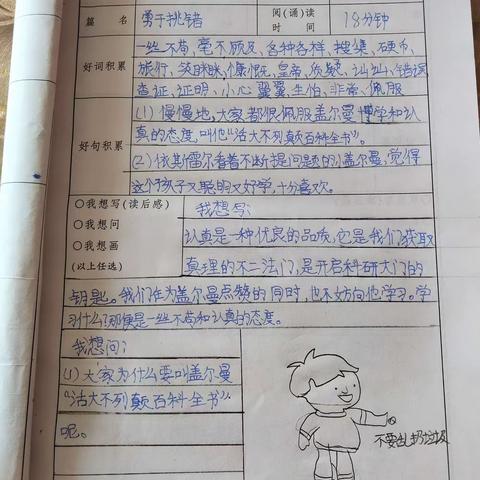 篇 名 勇于挑错 阅(诵)读时间 18分钟
好词积累
一丝不苟、毫不顾及、各种各样、搜集、硬币、
旅行、笑眯眯、慷慨、皇帝、质疑、讪讪、错误
查证、证明、小心翼翼、生怕、非常、佩服
好句积累
(1)慢慢地,大家都很佩服盖尔曼博学和认
真的态度,叫他“活大不列颠百科全书”。
(2)依斯雷尔看着不断提问题的小盖尔曼,觉得
这个孩子又聪明又好学,十分喜欢。
○我想写(读后感)
○我想问
○我想画
(以上任选)
我想写:
认真是一种优良的品质,它是我们获取
真理的不二法门,是开启科研大门的
钥匙。我们在为盖尔曼点赞的同时,也不妨向他学习。学
习什么?那便是一丝不苟和认真的态度。
我想问:
(1)大家为什么要叫盖尔曼
“活大不列颠百科全书”
呢。
不要乱扔垃圾